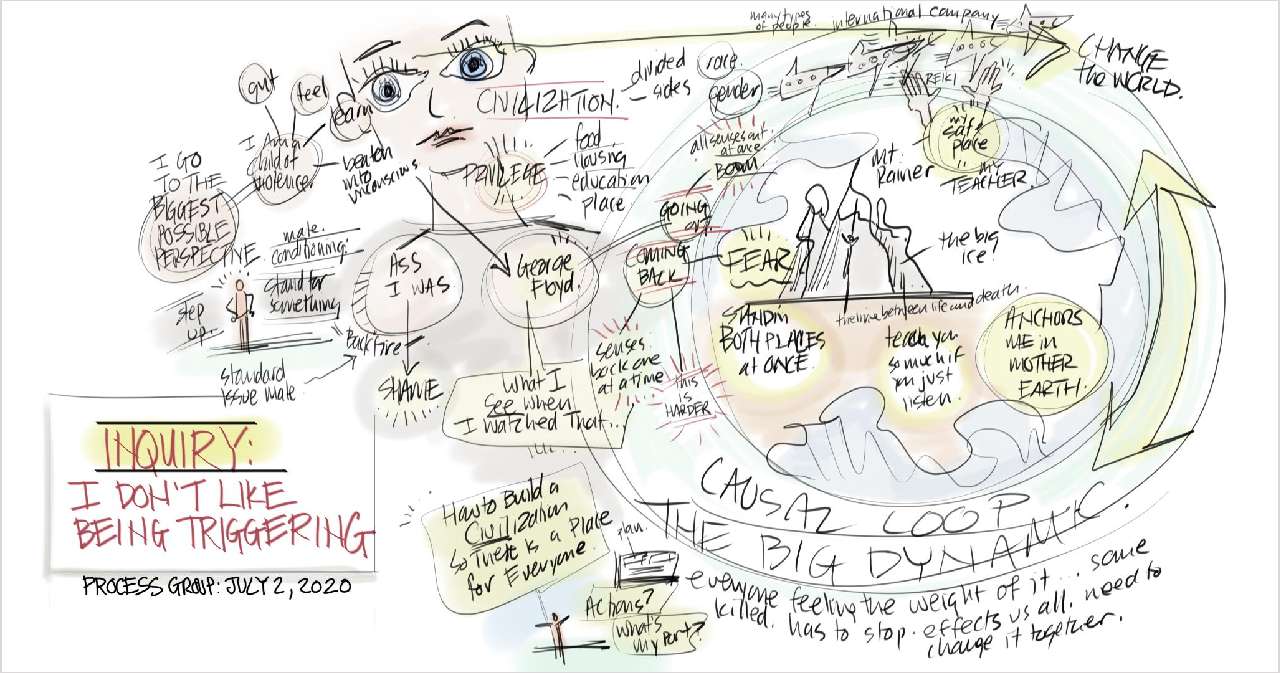 many types
of people.
international company
CHANGE
the WORLD.
REIKI
gut
feel
learn
I Am a
child of
violence.
beaten
into
unconscious
I GO
TO THE
BIGGEST
POSSIBLE
PERSPECTIVE
CIVILIZATION.
divided
sides
race
gender
PRIVILEGE
food
housing
education
place
all senses out
at once
BOOM
GOING
OUT
COMING
BACK
senses
back one
at a time
this
is
HARDER
my
safe
place
my
TEACHER.
mt.
Rainier
the big
ice!
FEAR
the line between life and death.
STAND IN
BOTH PLACES
at ONCE.
teach you
so much if
you just
listen.
ANCHORS
ME IN
MOTHER
EARTH.
male
conditioning.
stand for
something
step
up.
Backfire
standard
issue male.
ASS
I WAS
SHAME
George
Floyd.
what I
See when
I watched That...
INQUIRY:
I DON'T LIKE
BEING TRIGGERING
PROCESS GROUP: JULY 2, 2020
How to Build a
Civilization
So There Is a Place
for Everyone.
plan.
Actions?
What's
my Part?
CAUSAL LOOP
THE BIG DYNAMIC.
everyone feeling the weight of it... some
killed. has to stop. effects us all. need to
change it together.